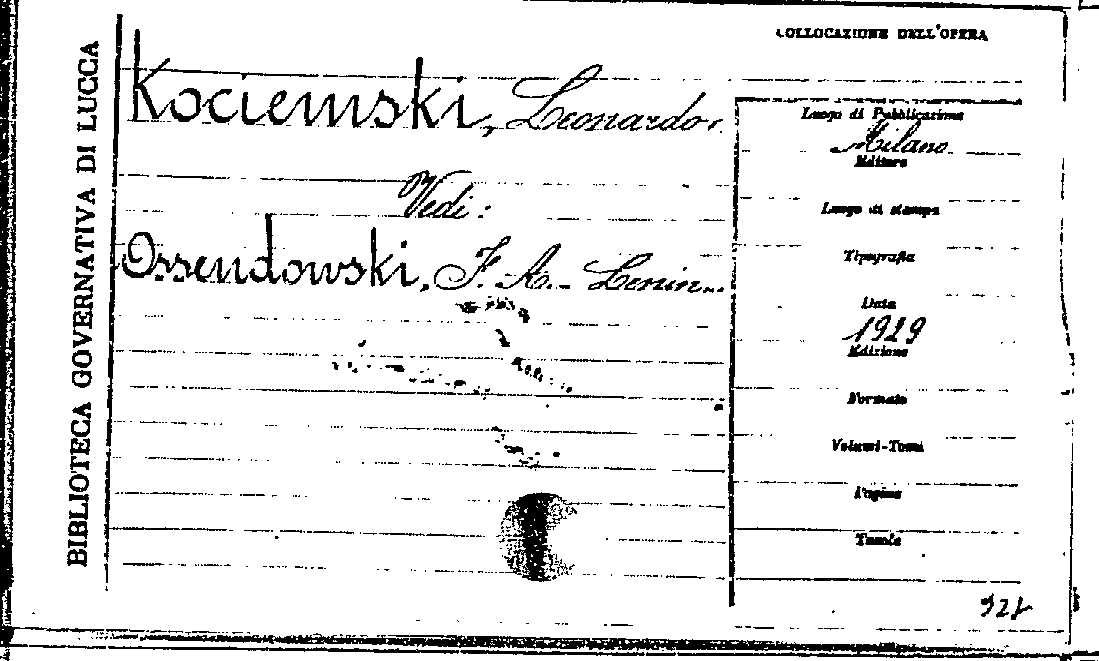 BIBLIOTECA GOVERNATIVA DI LUCCA
COLLOCAZIONE DELL'OPERA
Kociemski, Leonardo.
Vedi:
Ossendowski, F. A. - Lenin...
Luogo di Pubblicazione
Milano
Editore
Luogo di stampa
Tipografia
Data
1929
Edizione
Formato
Volumi-Tomi
Pagine
Tavole